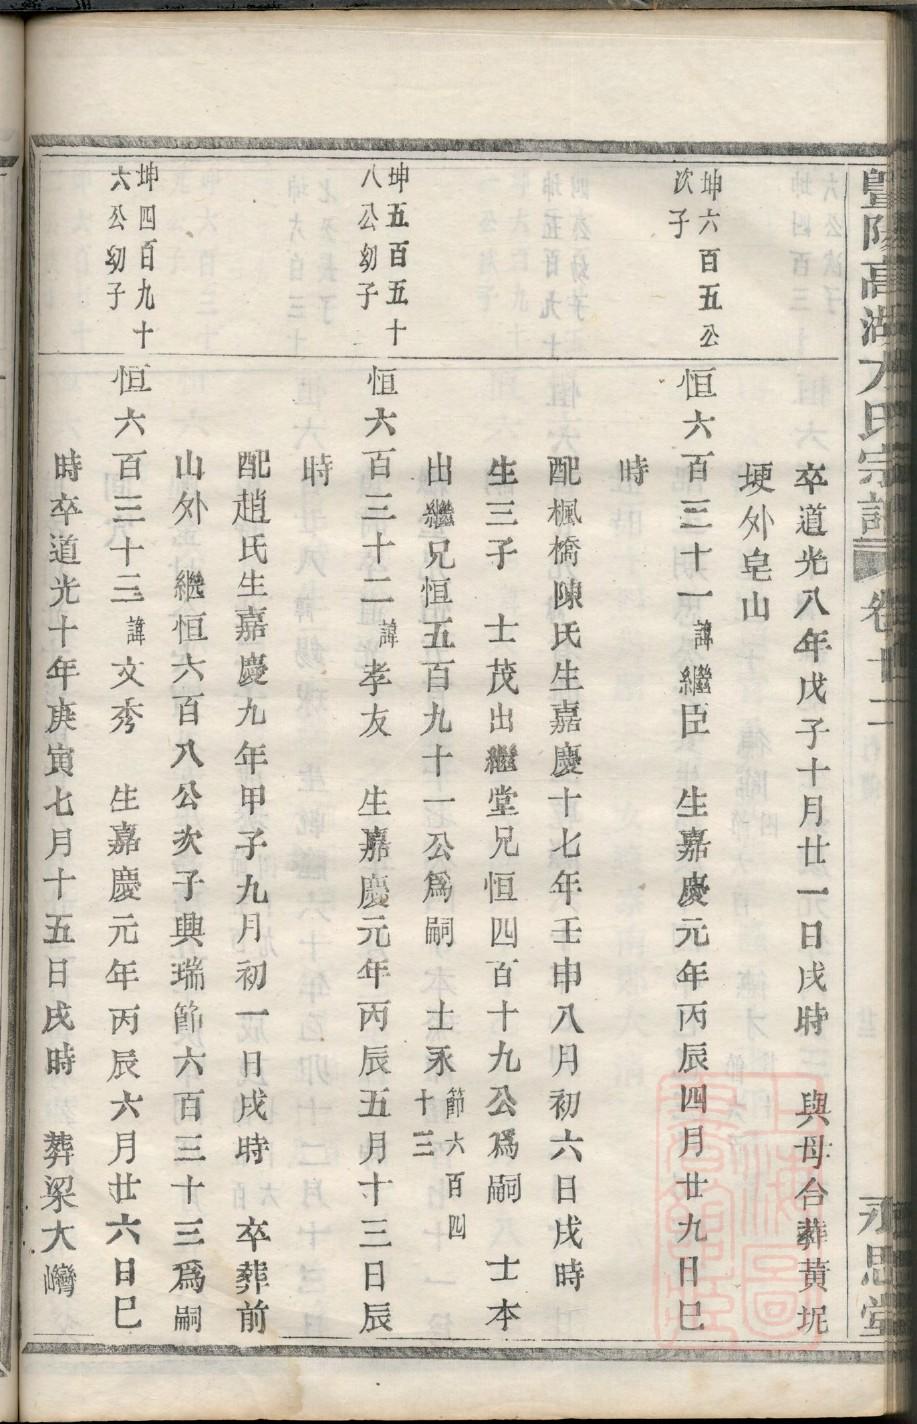 暨陽高湖方氏宗譜 卷廿二 永思堂
卒道光八年戊子十月廿一日戌時 與母合葬黃坭
埂外皂山
坤六百五公
次子
恒六百三十一諱繼臣 生嘉慶元年丙辰四月廿九日巳
時
配楓橋陳氏生嘉慶十七年壬申八月初六日戌時
生三子 士茂出繼堂兄恒四百十九公爲嗣 士本
出繼兄恒五百九十一公爲嗣 士永節六百四十三
坤五百五十
八公幼子
恒六百三十二諱孝友 生嘉慶元年丙辰五月十三日辰
時
配趙氏生嘉慶九年甲子九月初一日戌時 卒葬前
山外 繼恒六百八公次子興瑞節六百三十三爲嗣
坤四百九十
六公幼子
恒六百三十三諱文秀 生嘉慶元年丙辰六月廿六日巳
時卒道光十年庚寅七月十五日戌時 葬梁大巒